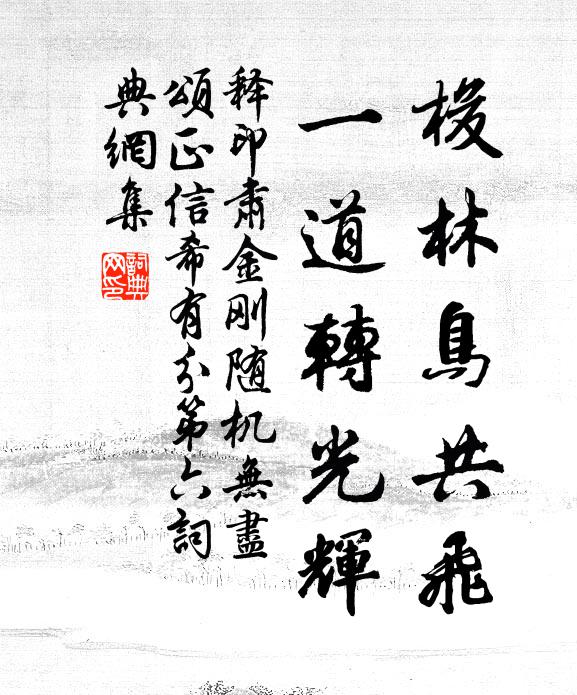 梭林鳥共飛
一道轉光輝
释印肃金刚随机無盡
頌正信希有分第六詞
典網集
詞典网印